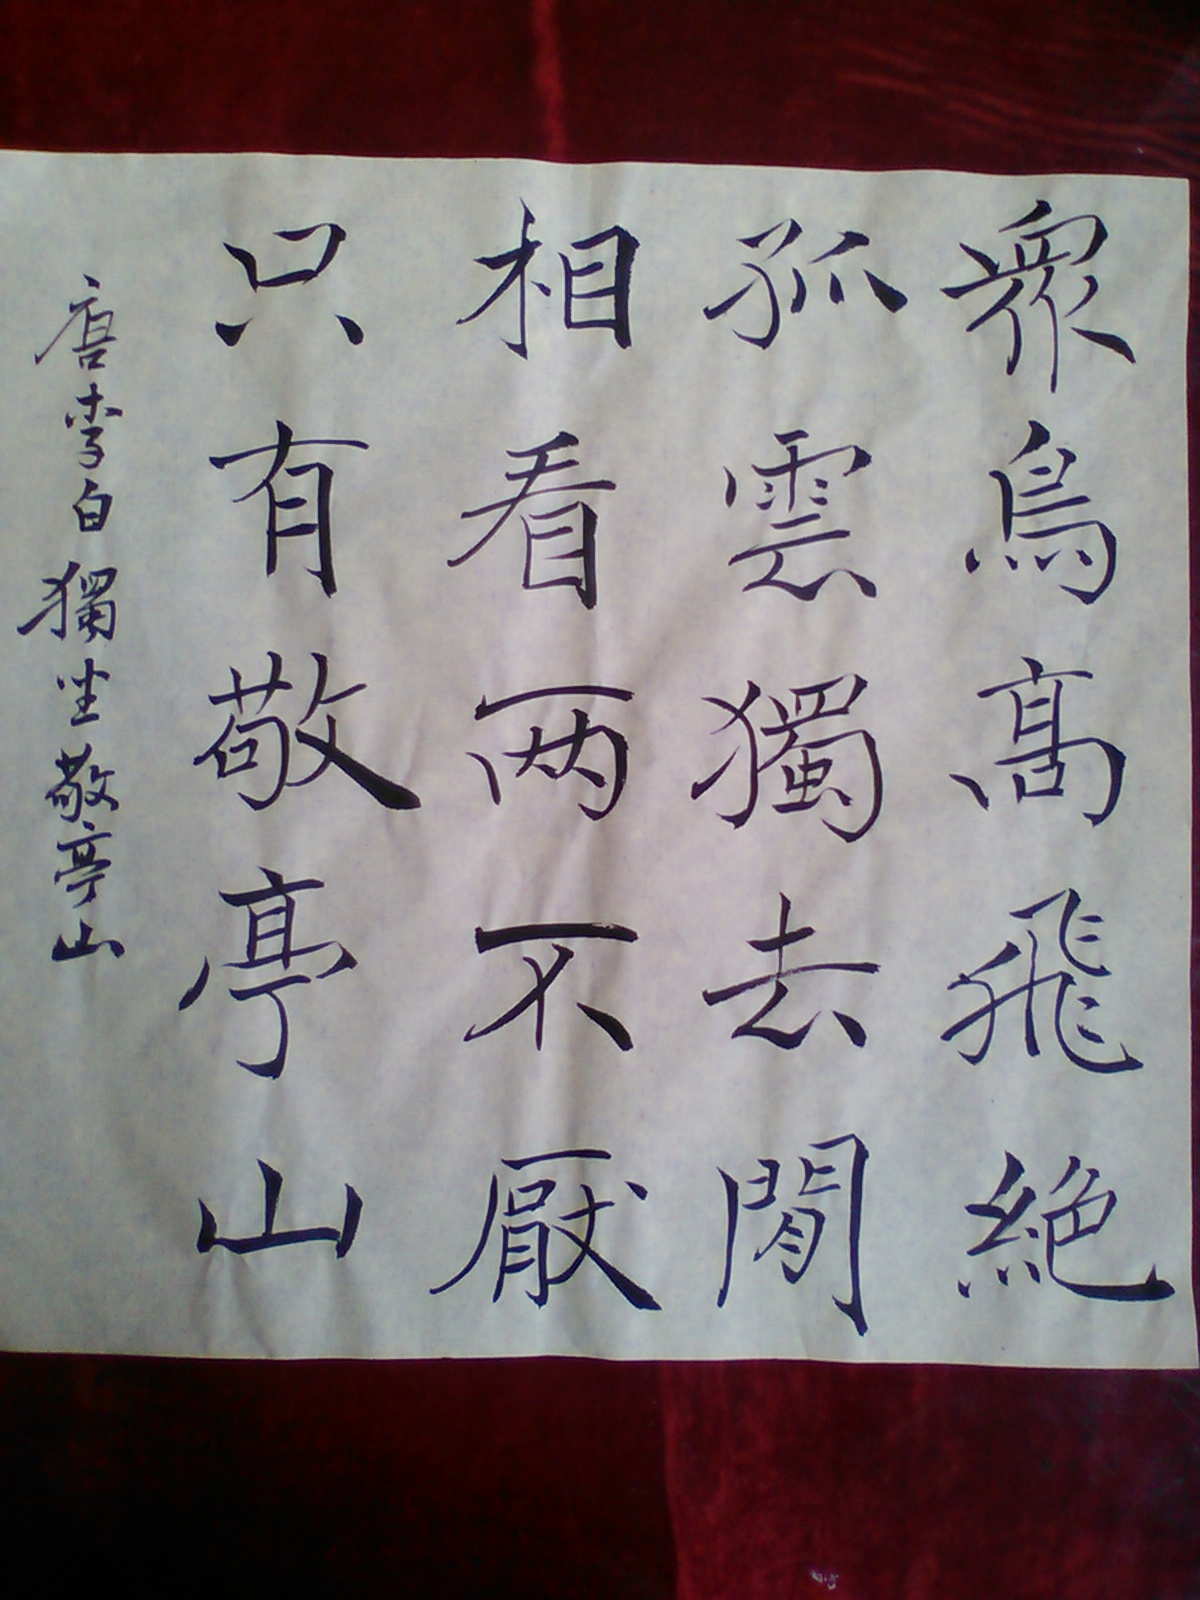 衆鳥高飛絶
孤雲獨去閒
相看两不厭
只有敬亭山
唐李白獨坐敬亭山